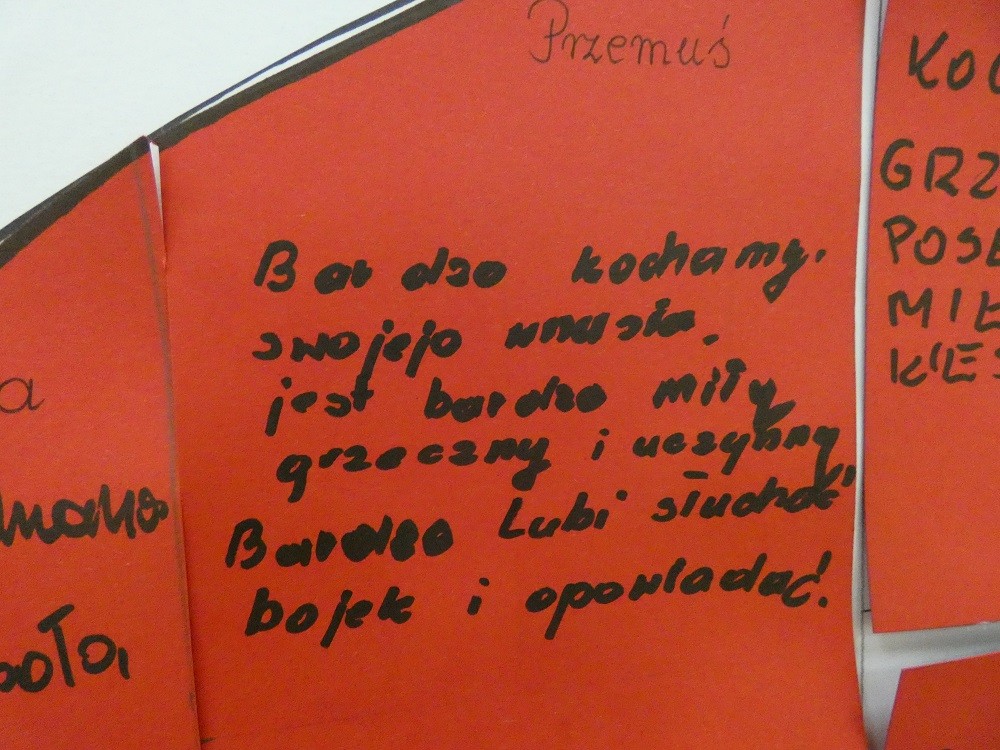 Przemuś
Bardzo kochamy.
swojejo wnusia.
jest bardzo miły
grzeczny i uczynny,
Bardzo Lubi słuchać
bojek i opowiadać!
KOC
GRZ
POSŁ
MIŁ
KIES
a